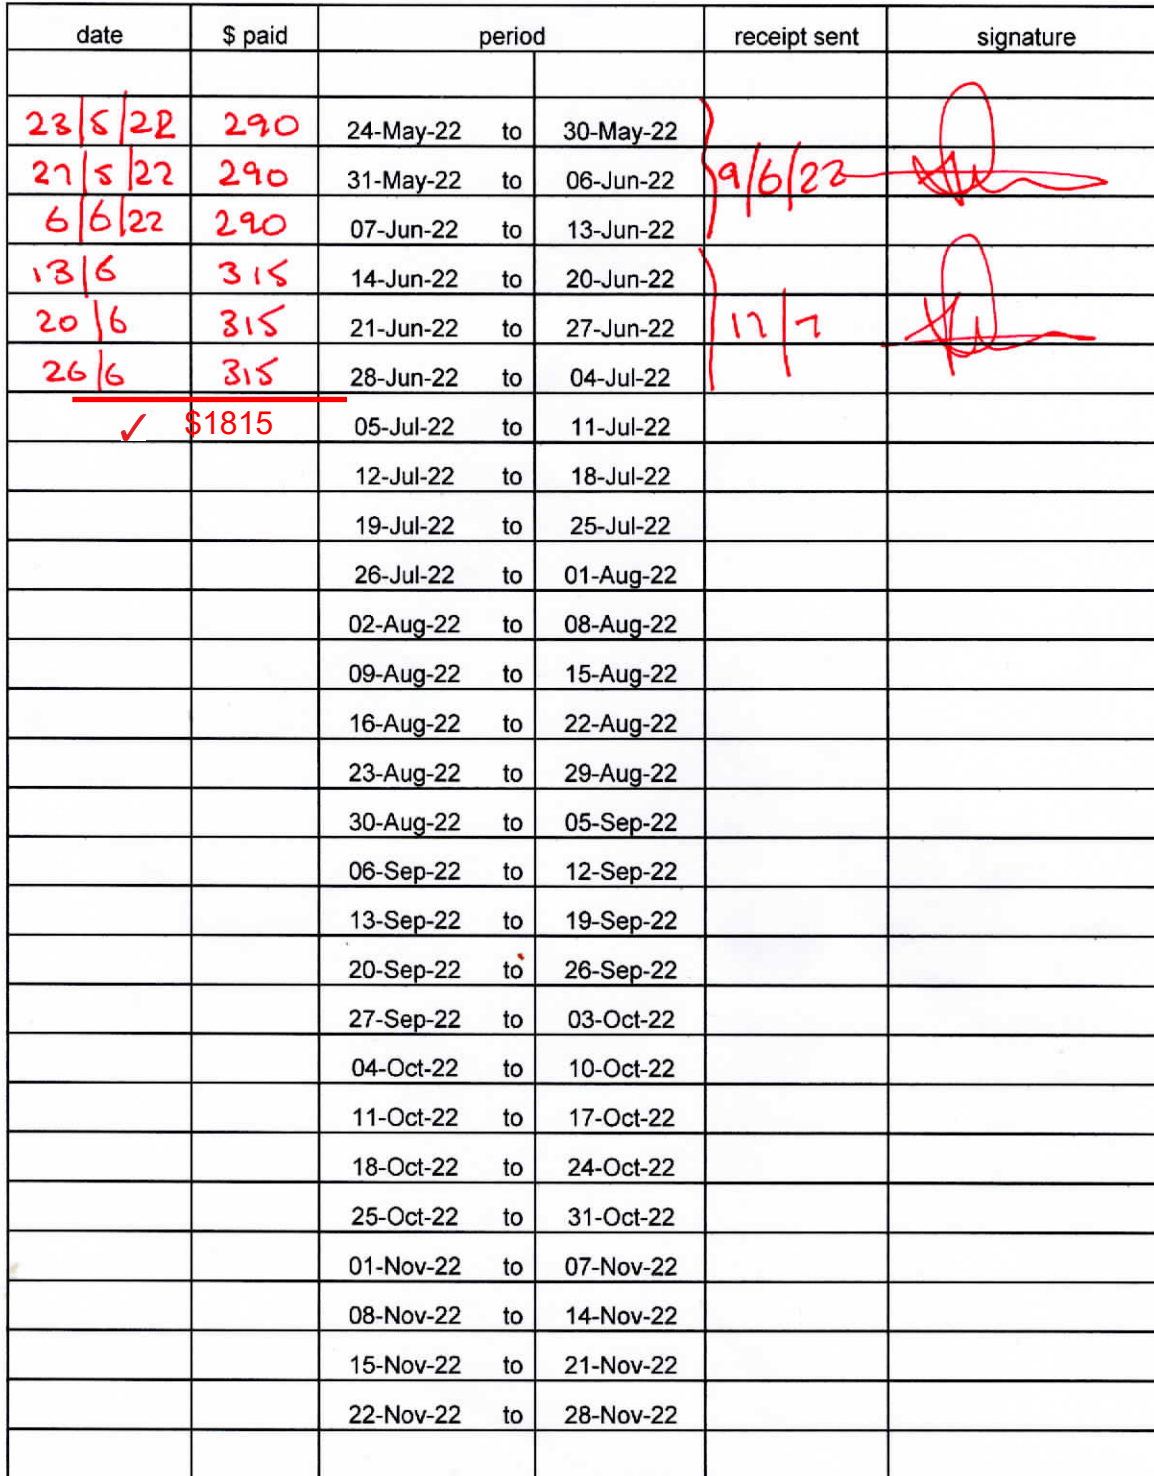 date $ paid period receipt sent signature
23/5/22 290 24-May-22 to 30-May-22
27/5/22 290 31-May-22 to 06-Jun-22 9/6/22
6/6/22 290 07-Jun-22 to 13-Jun-22
13/6 315 14-Jun-22 to 20-Jun-22
20/6 315 21-Jun-22 to 27-Jun-22 17/7
26/6 315 28-Jun-22 to 04-Jul-22
✓ $1815 05-Jul-22 to 11-Jul-22
12-Jul-22 to 18-Jul-22
19-Jul-22 to 25-Jul-22
26-Jul-22 to 01-Aug-22
02-Aug-22 to 08-Aug-22
09-Aug-22 to 15-Aug-22
16-Aug-22 to 22-Aug-22
23-Aug-22 to 29-Aug-22
30-Aug-22 to 05-Sep-22
06-Sep-22 to 12-Sep-22
13-Sep-22 to 19-Sep-22
20-Sep-22 to 26-Sep-22
27-Sep-22 to 03-Oct-22
04-Oct-22 to 10-Oct-22
11-Oct-22 to 17-Oct-22
18-Oct-22 to 24-Oct-22
25-Oct-22 to 31-Oct-22
01-Nov-22 to 07-Nov-22
08-Nov-22 to 14-Nov-22
15-Nov-22 to 21-Nov-22
22-Nov-22 to 28-Nov-22